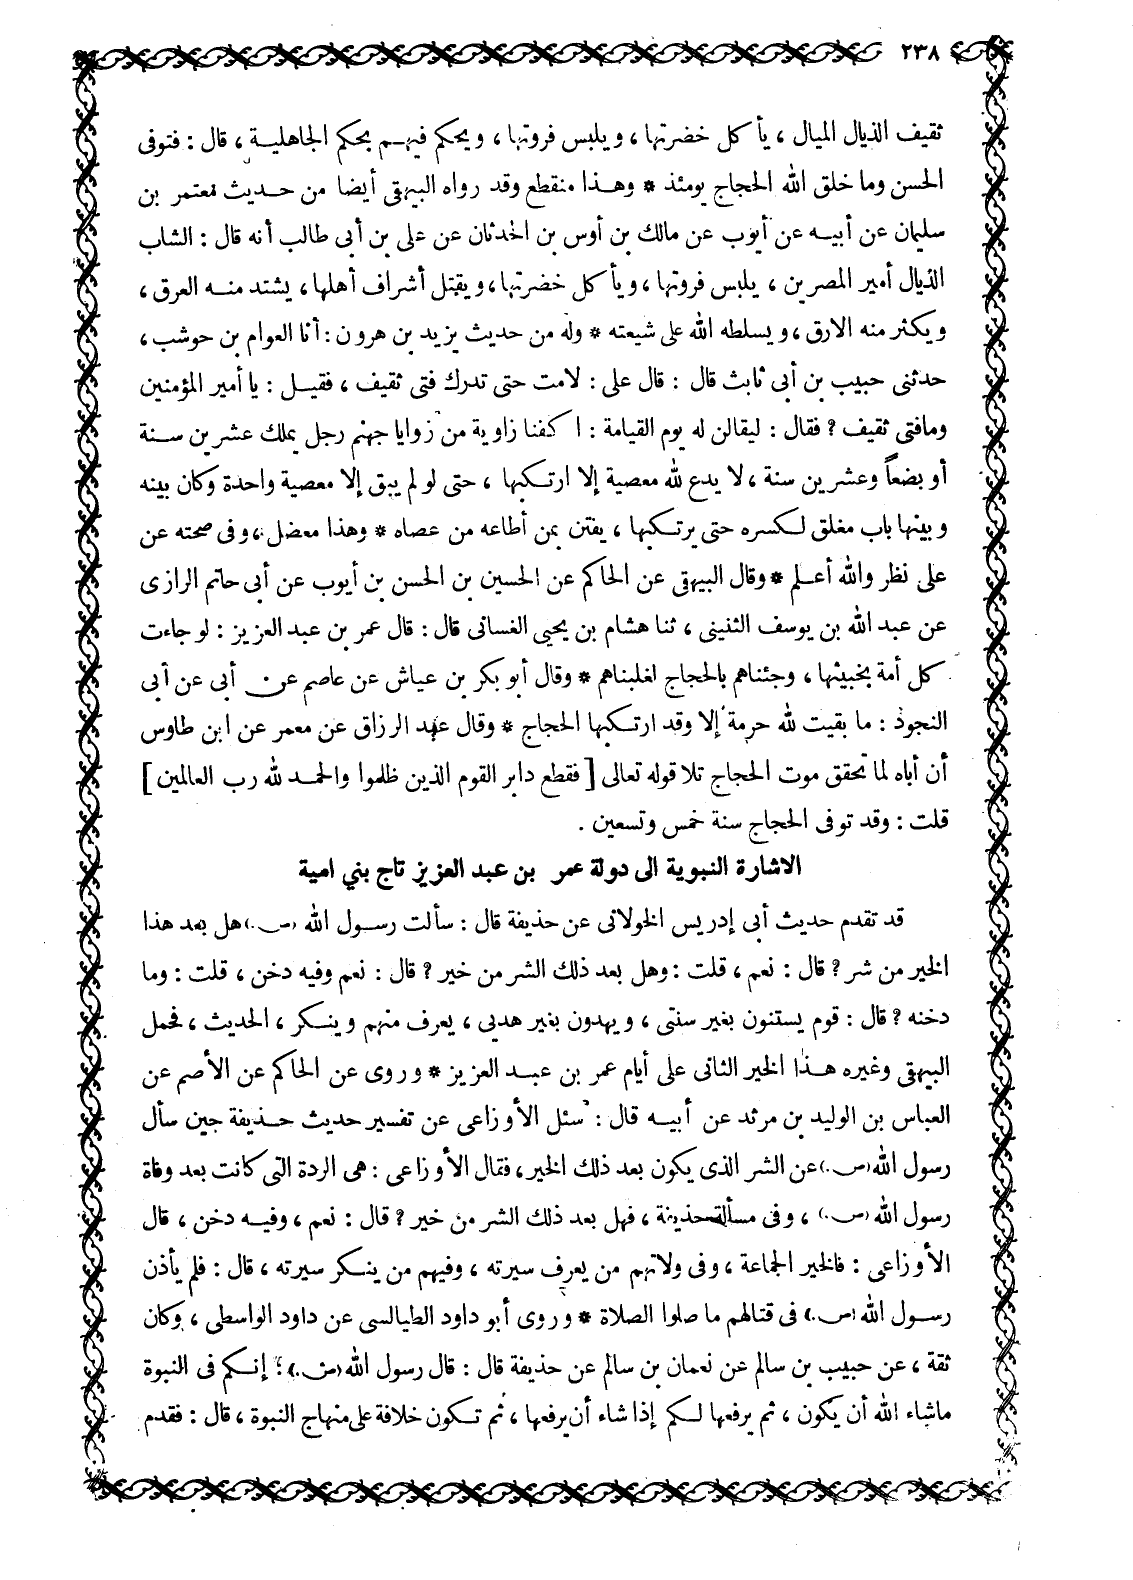 ٢٣٨
ثقيف الذيال الميال ، يأكل خضرتها ، ويلبس فروتها ، ويحكم فيهم بحكم الجاهلية ، قال : فتوفى
الحسن وما خلق الله الحجاج يومئذ * وهذا منقطع وقد رواه البيهقى أيضا من حديث معتمر بن
سليمان عن أبيه عن أيوب عن مالك بن أوس بن الحدثان عن على بن أبى طالب أنه قال : الشاب
الذيال أمير المصرين ، يلبس فروتها ، ويأكل خضرتها ، ويقتل أشراف أهلها ، يشتد منه العرق ،
ويكثر منه الارق ، ويسلطه الله على شيعته * وله من حديث يزيد بن هرون : أنا العوام بن حوشب ،
حدثنى حبيب بن أبى ثابت قال : قال على : لامت حتى تدرك فتى ثقيف ، فقيل : يا أمير المؤمنين
ومافتى ثقيف ? فقال : ليقالن له يوم القيامة : اكفنا زاوية من زوايا جهنم رجل يملك عشرين سنة
أو بضعاً وعشرين سنة ، لا يدع لله معصية إلا ارتكبها ، حتى لو لم يبق إلا معصية واحدة وكان بينه
وبينها باب مغلق لكسره حتى يرتكبها ، يفتن بمن أطاعه من عصاه * وهذا معضل ، وفى صحته عن
على نظر والله أعلم * وقال البيهقى عن الحاكم عن الحسين بن الحسن بن أيوب عن أبى حاتم الرازى
عن عبد الله بن يوسف الثنينى ، ثنا هشام بن يحيى الغسانى قال : قال عمر بن عبد العزيز : لو جاءت
كل أمة بخبيثها ، وجئناهم بالحجاج لغلبناهم * وقال أبو بكر بن عياش عن عاصم عن أبى عن أبى
النجود : ما بقيت لله حرمة إلا وقد ارتكبها الحجاج * وقال عبد الرزاق عن معمر عن ابن طاوس
أن أباه لما تحقق موت الحجاج تلا قوله تعالى [ فقطع دابر القوم الذين ظلموا والحمد لله رب العالمين ]
قلت : وقد توفى الحجاج سنة خمس وتسعين .
الاشارة النبوية الى دولة عمر بن عبد العزيز تاج بني امية
قد تقدم حديث أبى إدريس الخولانى عن حذيفة قال : سألت رسول الله (ص.) هل بعد هذا
الخير من شر ? قال : نعم ، قلت : وهل بعد ذلك الشر من خير ? قال : نعم وفيه دخن ، قلت : وما
دخنه ? قال : قوم يستنون بغير سنتى ، ويهدون بغير هديى ، يعرف منهم وينكر ، الحديث ، فحمل
البيهقى وغيره هذا الخير الثانى على أيام عمر بن عبد العزيز * وروى عن الحاكم عن الأصم عن
العباس بن الوليد بن مرثد عن أبيه قال : سئل الأوزاعى عن تفسير حديث حذيفة حين سأل
رسول الله (ص.) عن الشر الذى يكون بعد ذلك الخير ، فقال الأوزاعى : هى الردة التى كانت بعد وفاة
رسول الله (ص.) ، وفى مسألة حذيفة ، فهل بعد ذلك الشر من خير ? قال : نعم ، وفيه دخن ، قال
الأوزاعى : فالخير الجماعة ، وفى ولاتهم من يعرف سيرته ، وفيهم من ينكر سيرته ، قال : فلم يأذن
رسول الله (ص.) فى قتالهم ما صلوا الصلاة * وروى أبو داود الطيالسى عن داود الواسطى ، وكان
ثقة ، عن حبيب بن سالم عن نعمان بن سالم عن حذيفة قال : قال رسول الله (ص.) : إنكم فى النبوة
ماشاء الله أن يكون ، ثم يرفعها لكم إذا شاء أن يرفعها ، ثم تكون خلافة على منهاج النبوة ، قال : فقدم